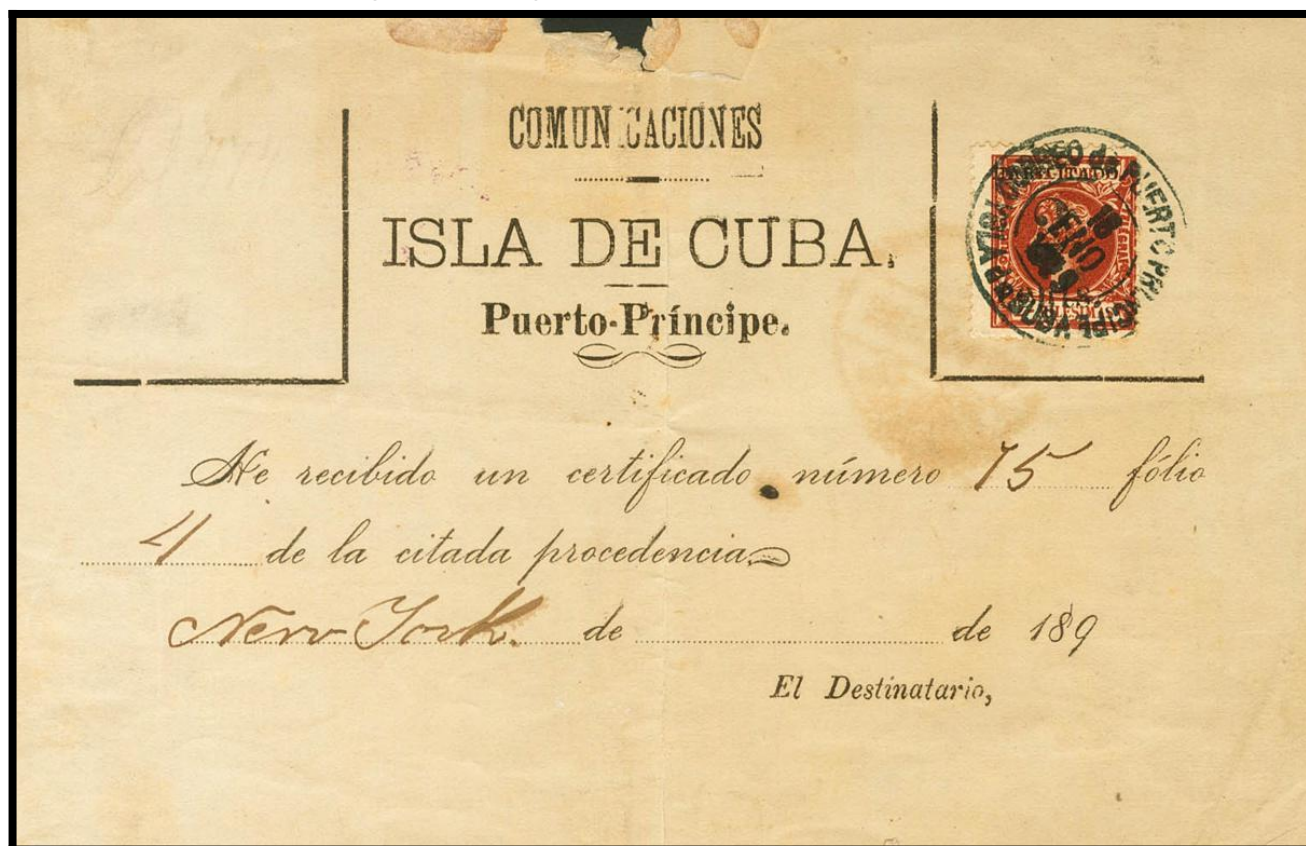 COMUNICACIONES
ISLA DE CUBA.
Puerto-Príncipe.
CORREO de PUERTO PRINCIPE
ENERO
He recibido un certificado número 75 fólio
4 de la citada procedencia
New York. de de 189
El Destinatario,